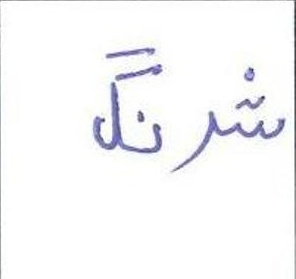 شرنگ